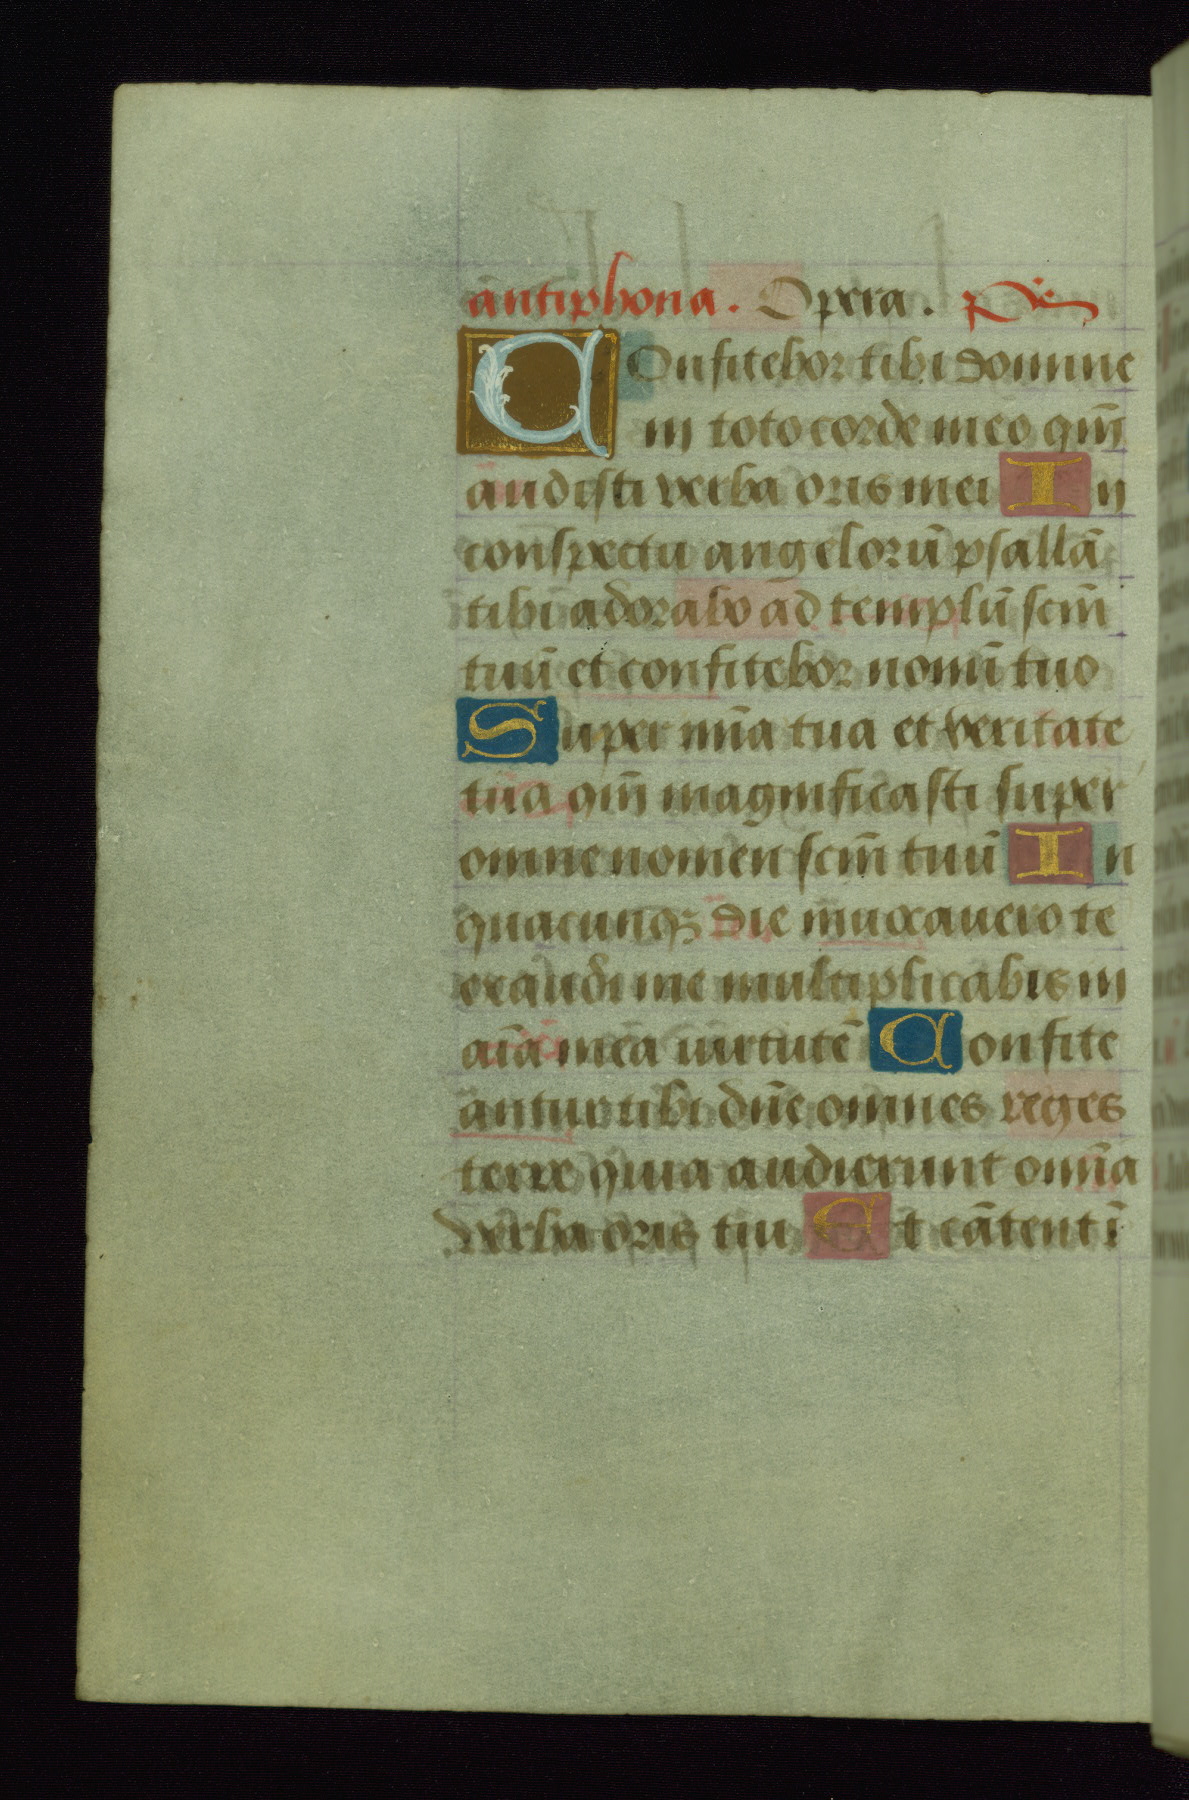 antiphona. Opera. Ps
Confitebor tibi domine
in toto corde meo qm̄
audisti verba oris mei In
conspectu angelorū psallā
tibi adorabo ad templū scm̄
tuū et confitebor nomī tuo
Super mīa tua et veritate
tua qm̄ magnificasti super
omne nomen scm̄ tuū In
quacunqꝫ die inuocauero te
exaudi me multiplicabis in
aīa mea uirtutē Confite
antur tibi dn̄e omnes reges
terre quia audierunt omīa
verba oris tui Et cātent ī